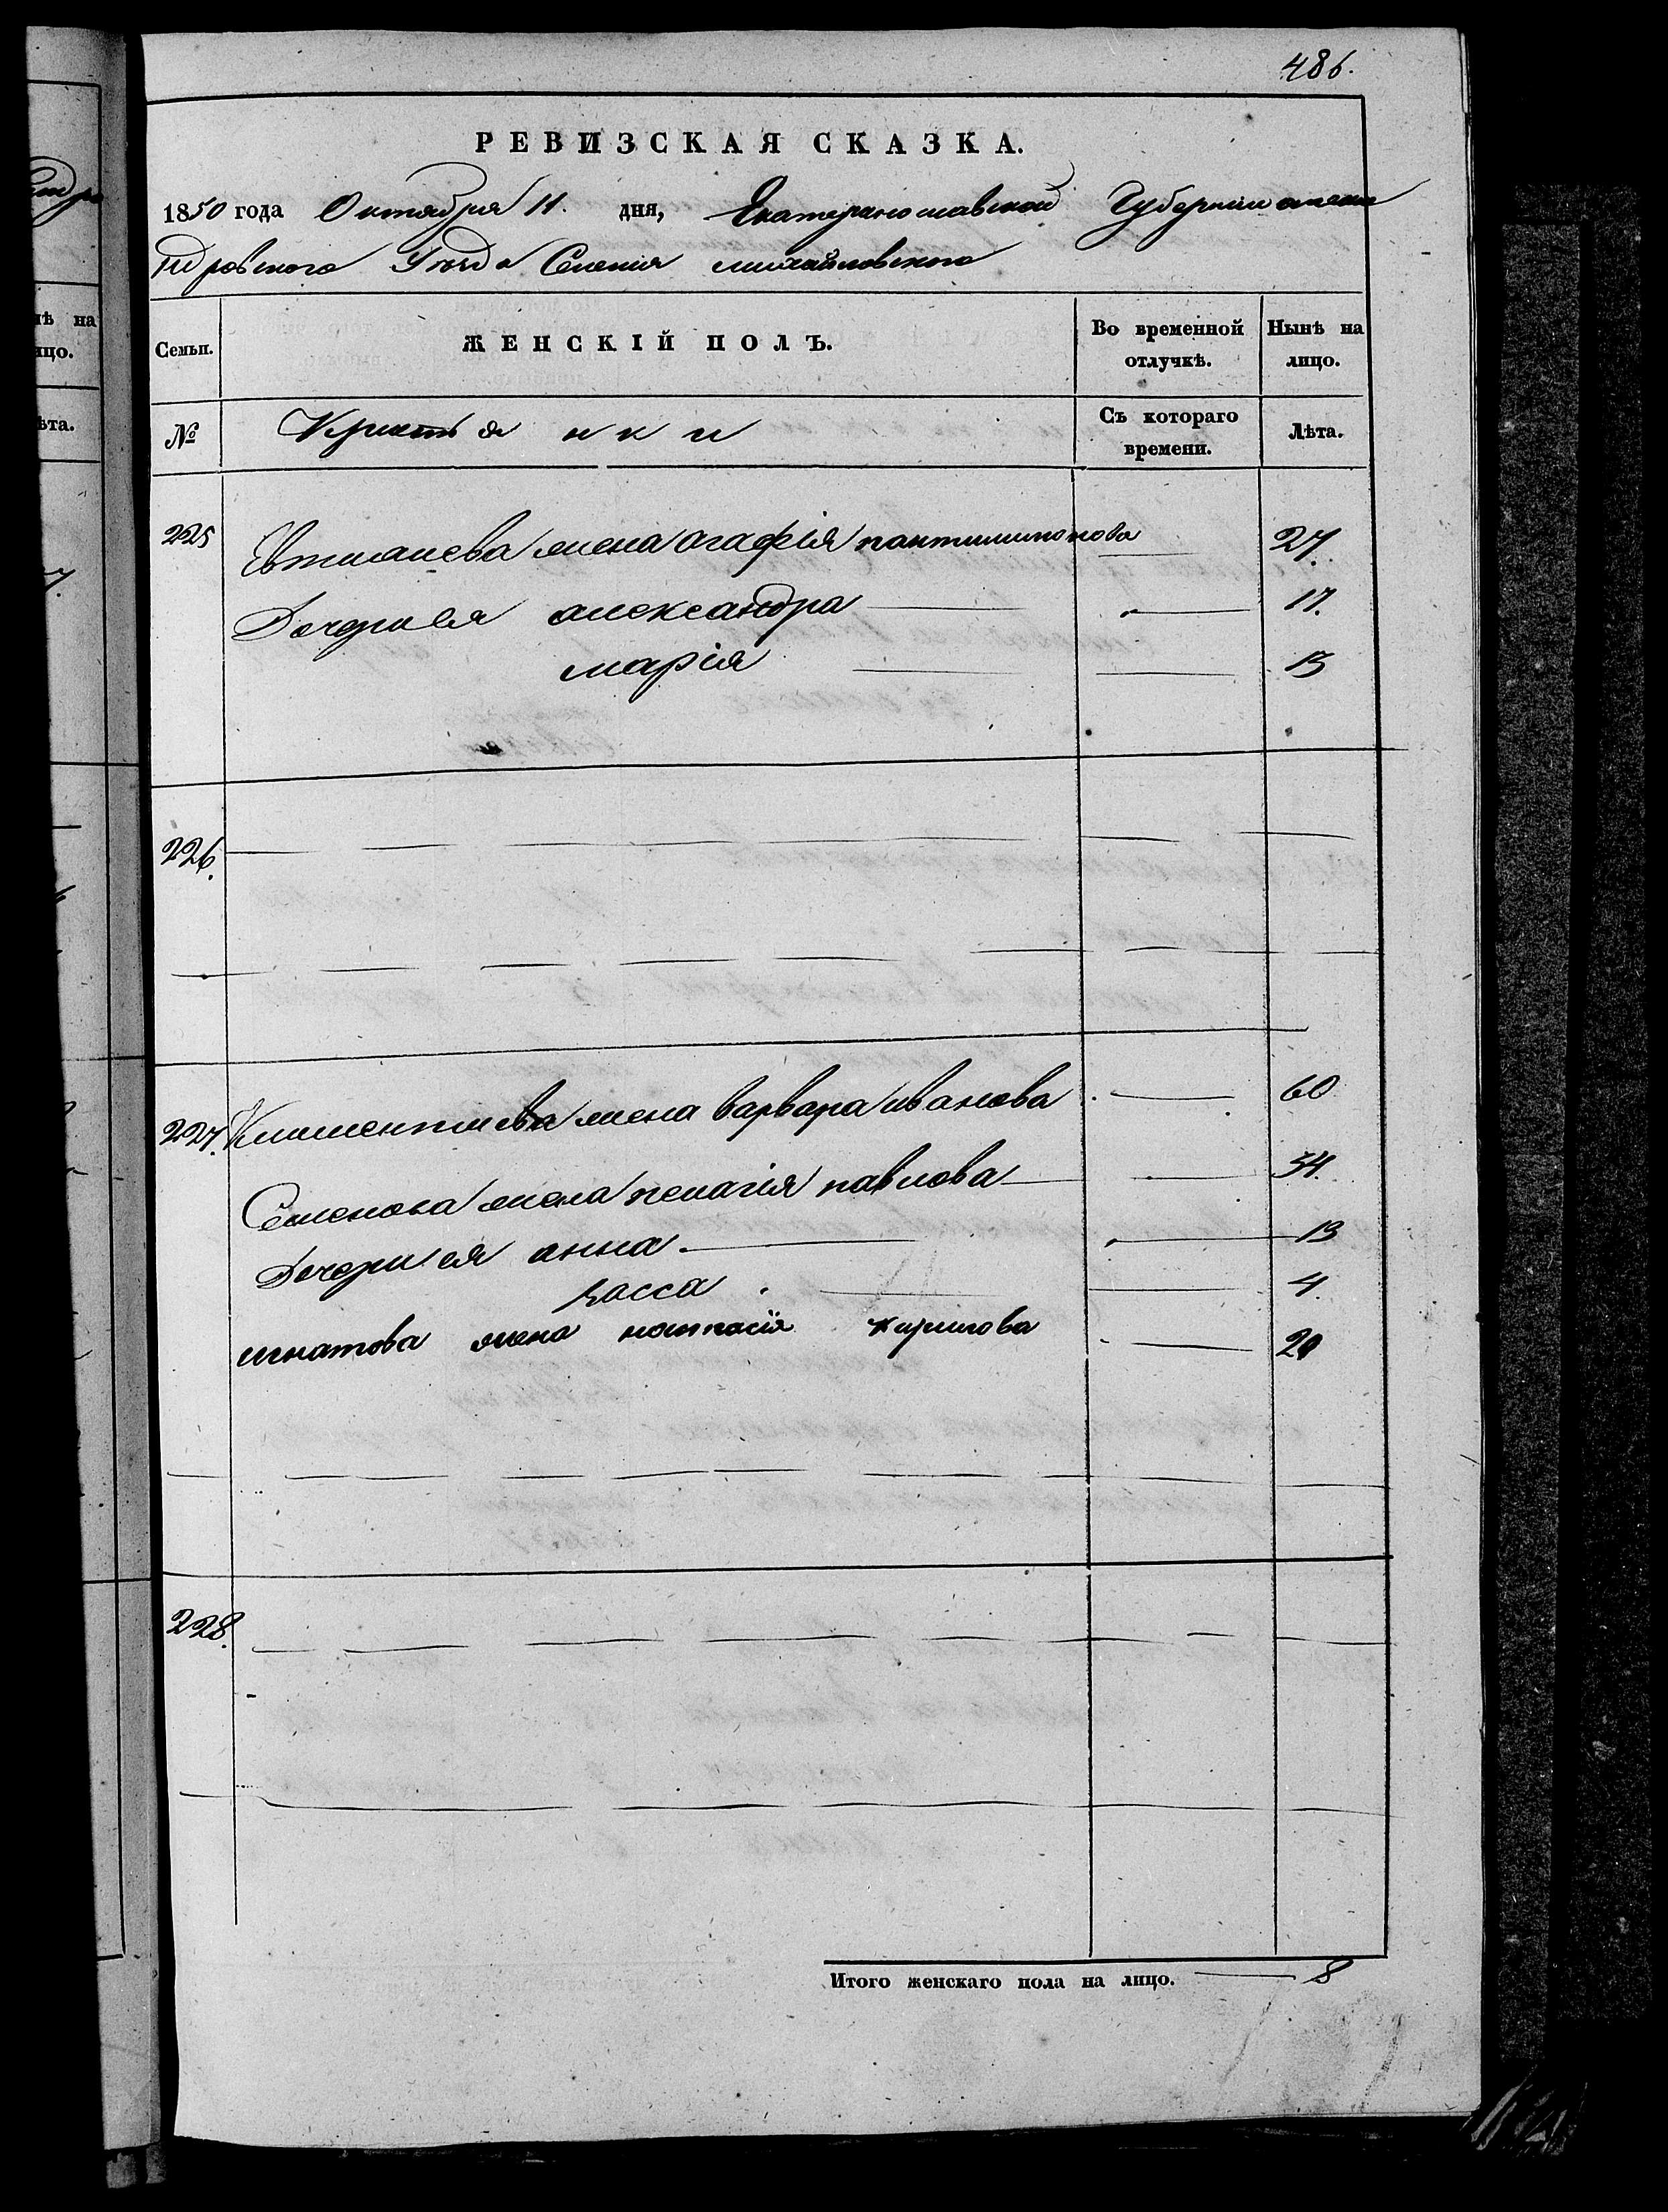 486.
РЕВИЗСКАЯ СКАЗКА.
1850 года Октября 11. дня, Екатеринославской Губернии алексан
дровского Уезда Селения михайловского
Семьи. ЖЕНСКІЙ ПОЛЪ. Во временной отлучкѣ. Нынѣ на лицо.
№ Кристья н к и Съ котораго времени. Лѣта.
225 Евтиѳиева жена агафія пантилимонова 27.
Дочери ея александра 17.
марія 13
226.
227. Климентиева жена варвара иванова 60
Семенова жена пелагія павлова 34.
Дочери ея анна 13
васса 4.
игнатова жена настасія кирилова 20
228.
Итого женскаго пола на лицо. 8
нѣ на
ицо.
ѣта.